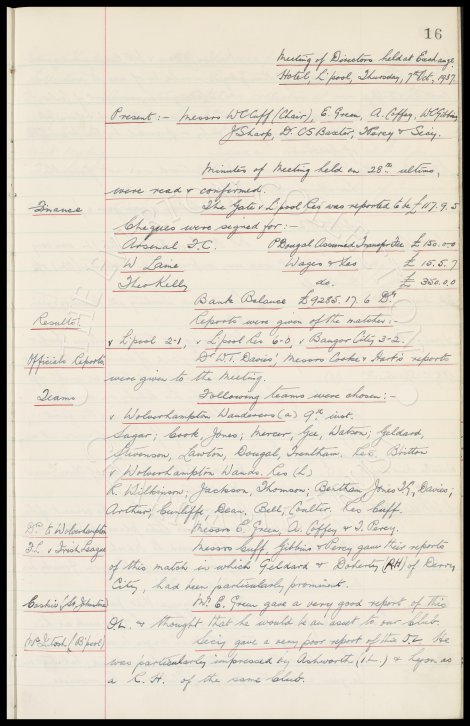 16
Meeting of Directors held at Exchange
Hotel, L'pool, Thursday, 7th Oct. 1937.
Present:- Messrs W C Cuff (Chair), E. Green, A. Coffey, W C Gibbins
J Sharp, Dr. C S Baxter, & Secy.
Minutes of Meeting held on 28th ultimo,
were read & confirmed.
Finance
The Gate v L'pool Res was reported to be £117.9.5
Cheques were signed for:-
Arsenal F.C. P Dougal Assumed Transfer Fee £ 150.0.0
W Laine Wages & Fees £ 15.5.7
Theo Kelly do. £ 350.0.0
Bank Balance £9285.17.6 Dr
Results:
Reports were given of the matches:-
v L'pool 2-1, v L'pool Res 6-0, v Bangor City 3-2.
Officials Reports
Dr W.T. Davies', Messrs Cooke & Hart's reports
were given to the Meeting.
Teams
Following teams were chosen:-
v Wolverhampton Wanderers (a) 9th inst.
Sagar; Cook, Jones; Mercer, Gee, Watson; Geldard,
Stevenson, Lawton, Dougal, Trentham. Res Britton
v Wolverhampton Wands. Res (h)
R. Wilkinson; Jackson, Thomson; Bentham, Jones TG, Davies;
Arthur, Cunliffe, Dean, Bell, Coulter. Res Cuff.
Dr. to Wolverhampton
Messrs E. Green, A. Coffey & J. Percy.
F.L. v Irish League
Messrs Cuff, Gibbins & Percy gave their reports
of this match in which Geldard & Doherty (RH) of Derry
City, had been particularly prominent.
Mr. E. Green gave a very good report of this
OL. & thought that he would be an asset to our Club.
McIntosh (B'pool)
Secy gave a very poor report of this I.L. He
was particularly impressed by Ashworth (I.L.) & Lyon as
a C.H. of the same club.